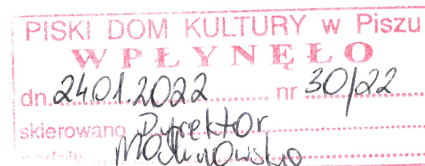 PISKI DOM KULTURY w Piszu
WPŁYNĘŁO
dn. 24.01.2022 nr 30/22
skierowano Dyrektor